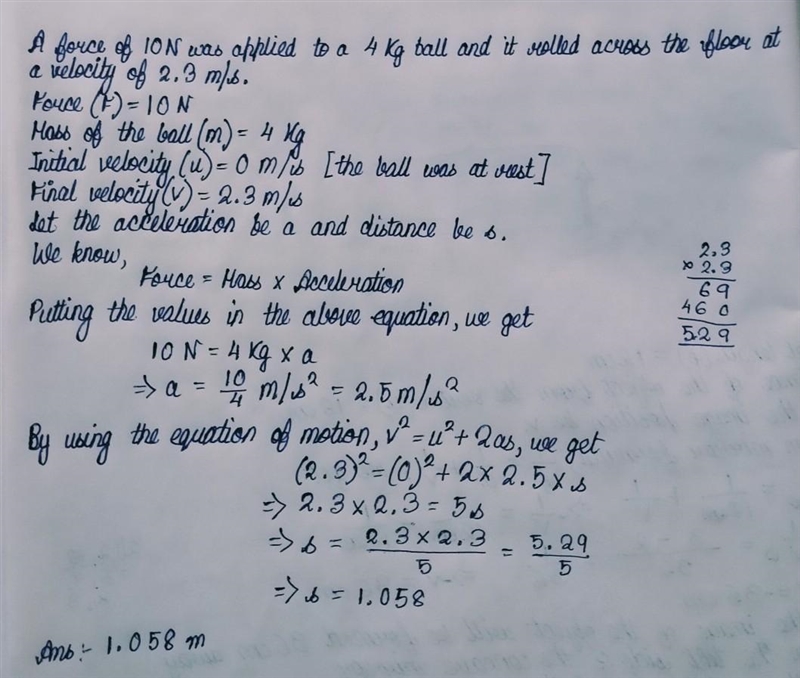 A force of 10N was applied to a 4 Kg ball and it rolled across the floor at
a velocity of 2.3 m/s.
Force (F) = 10 N
Mass of the ball (m) = 4 Kg
Initial velocity (u) = 0 m/s [the ball was at rest]
Final velocity (v) = 2.3 m/s
Let the acceleration be a and distance be s.
We know,
Force = Mass x Acceleration
Putting the values in the above equation, we get
10 N = 4 Kg x a
=> a = 10/4 m/s² = 2.5 m/s²
By using the equation of motion, v² = u² + 2as, we get
(2.3)² = (0)² + 2 x 2.5 x s
=> 2.3 x 2.3 = 5s
=> s = 2.3 x 2.3 / 5 = 5.29 / 5
=> s = 1.058
Ans :- 1.058 m
2.3
x 2.3
69
46 0
5.29